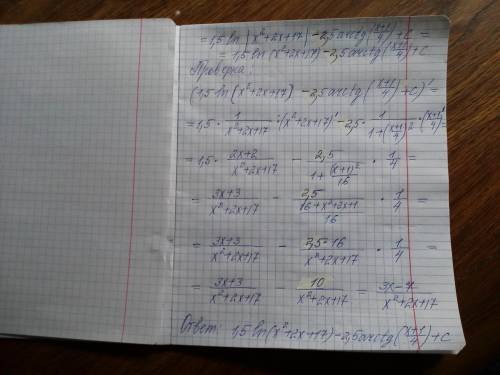 = 1,5 ln |x²+2x+17| - 2,5 arctg (x+1/4) + C =
= 1,5 ln (x²+2x+17) - 2,5 arctg (x+1/4) + C
Проверка:
(1,5 ln |x²+2x+17| - 2,5 arctg (x+1/4) + C)' =
= 1,5 · 1/x²+2x+17 · (x²+2x+17)' - 2,5 · 1/1+(x+1/4)² · (x+1/4)' =
= 1,5 · 2x+2/x²+2x+17 - 2,5/1+(x+1)²/16 · 1/4 =
= 3x+3/x²+2x+17 - 2,5/16+x²+2x+1/16 · 1/4 =
= 3x+3/x²+2x+17 - 2,5·16/x²+2x+17 · 1/4 =
= 3x+3/x²+2x+17 - 10/x²+2x+17 = 3x-7/x²+2x+17
Ответ: 1,5 ln (x²+2x+17) - 2,5 arctg (x+1/4) + C